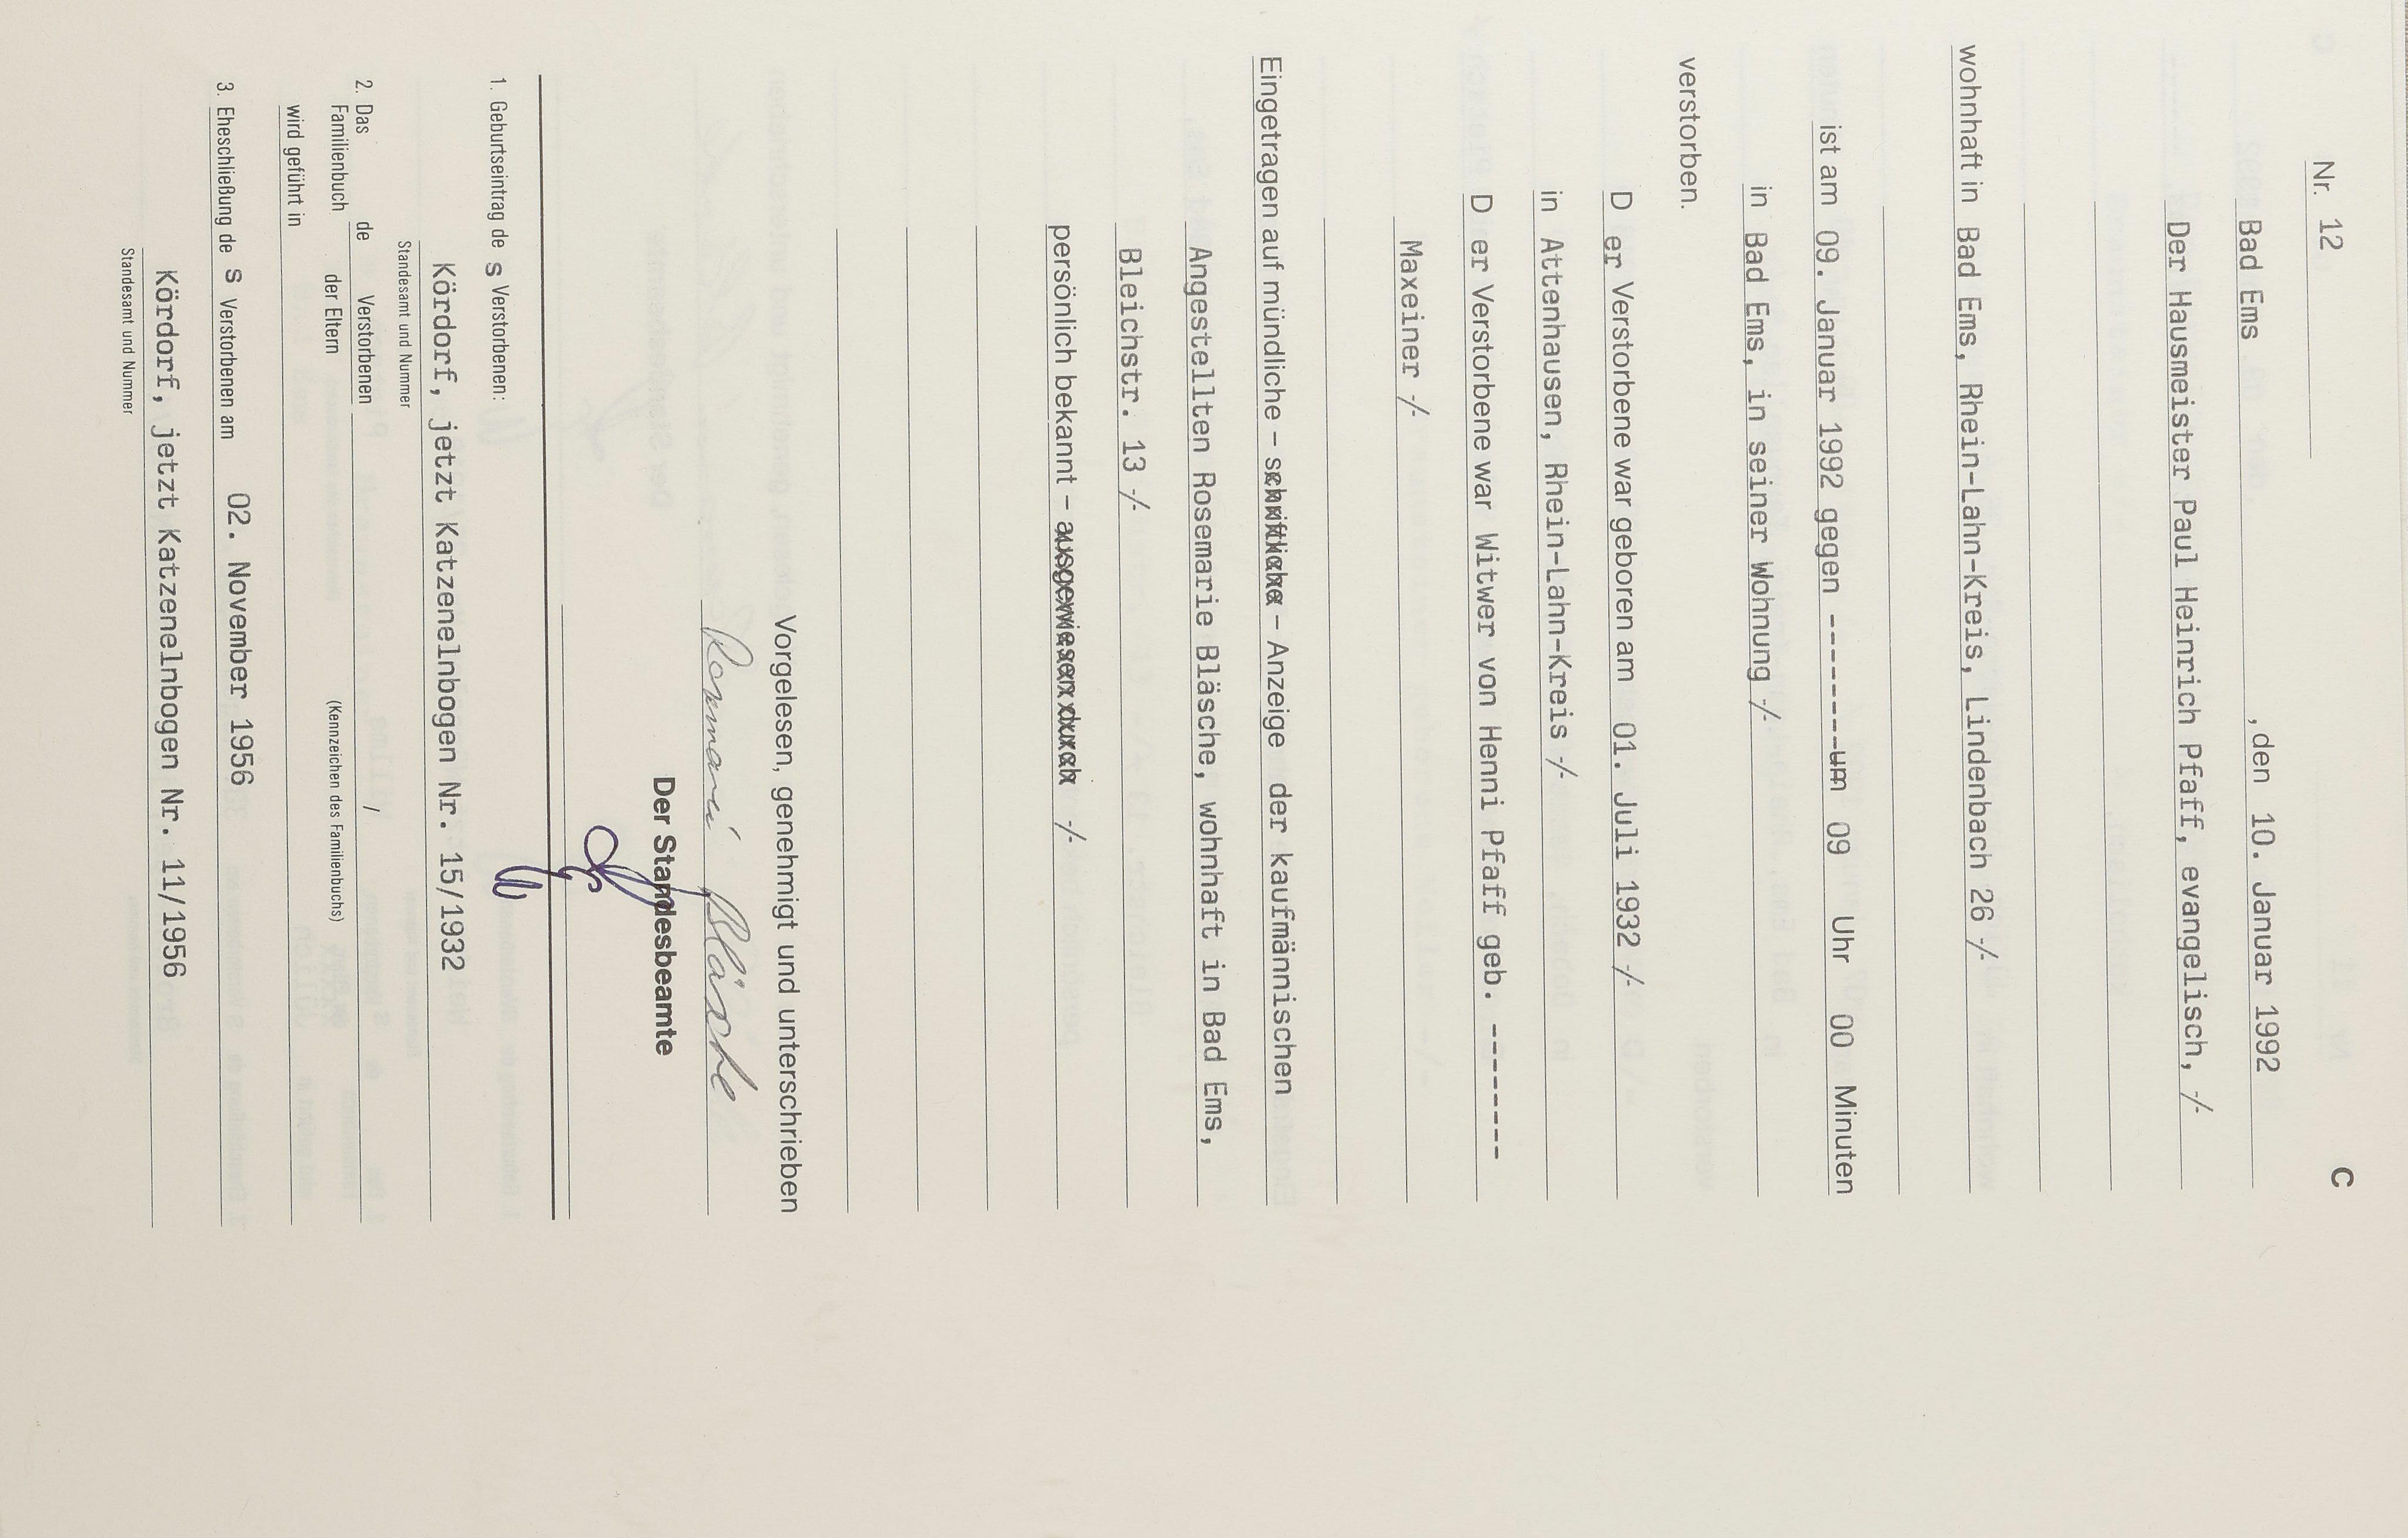 C
Nr. 12
Bad Ems , den 10. Januar 1992
Der Hausmeister Paul Heinrich Pfaff, evangelisch, -/-
wohnhaft in Bad Ems, Rhein-Lahn-Kreis, Lindenbach 26 -/-
ist am 09. Januar 1992 gegen ---------um 09 Uhr 00 Minuten
in Bad Ems, in seiner Wohnung -/-
verstorben.
D er Verstorbene war geboren am 01. Juli 1932 -/-
in Attenhausen, Rhein-Lahn-Kreis -/-
D er Verstorbene war Witwer von Henni Pfaff geb. --------
Maxeiner -/-
Eingetragen auf mündliche – schriftliche – Anzeige der kaufmännischen
Angestellten Rosemarie Bläsche, wohnhaft in Bad Ems,
Bleichstr. 13 -/-
persönlich bekannt – ausgewiesen durch -/-
Vorgelesen, genehmigt und unterschrieben
Rosemarie Bläsche
Der Standesbeamte
1. Geburtseintrag de s Verstorbenen:
Kördorf, jetzt Katzenelnbogen Nr. 15/1932
Standesamt und Nummer
2. Das Familienbuch de Verstorbenen /
der Eltern (Kennzeichen des Familienbuchs)
wird geführt in
3. Eheschließung de s Verstorbenen am 02. November 1956
Kördorf, jetzt Katzenelnbogen Nr. 11/1956
Standesamt und Nummer